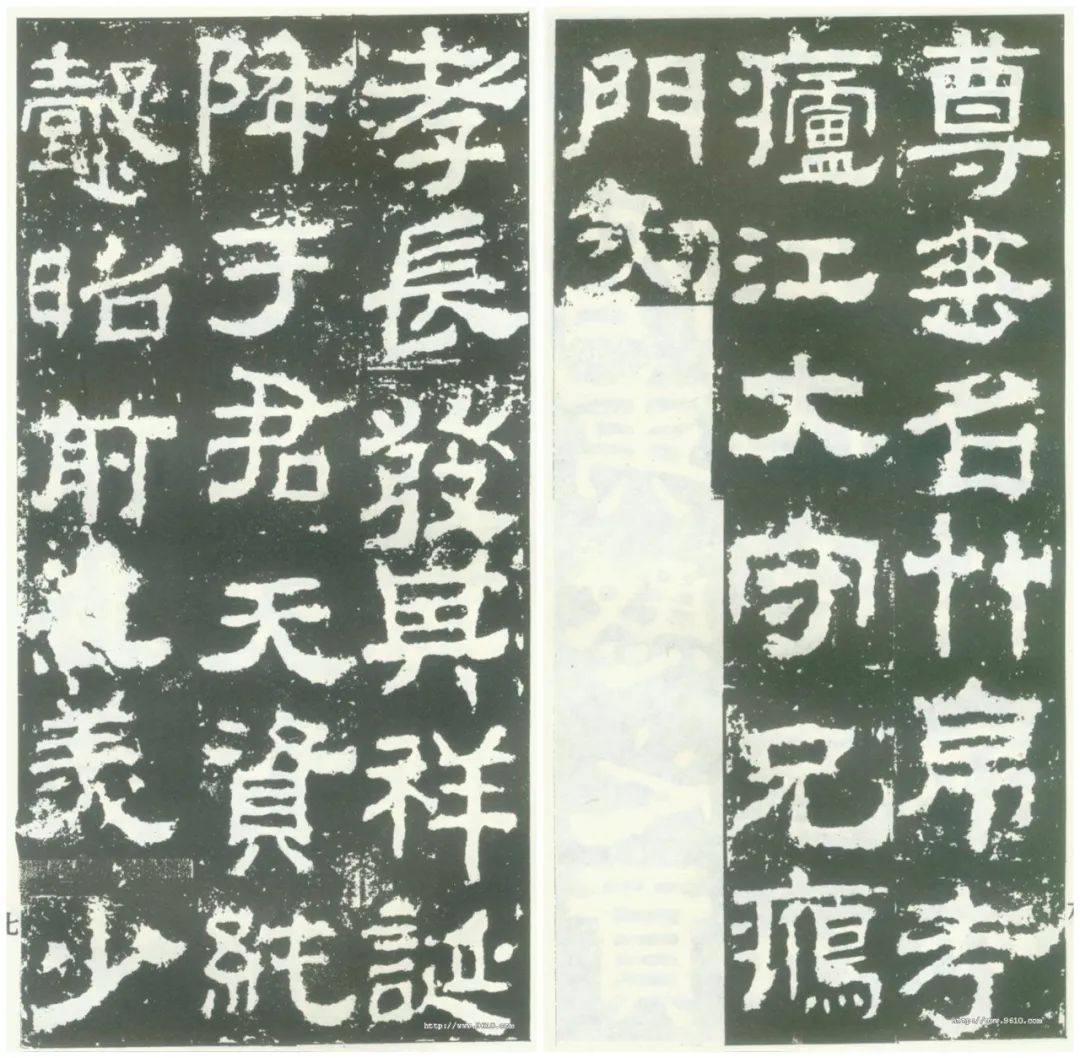 尊垂名竹帛考
廬江大守兄鴈
門
孝長發其祥誕
降于君天資純
懿昭前之美少
七
http://www.9610.com
http://www.9610.com